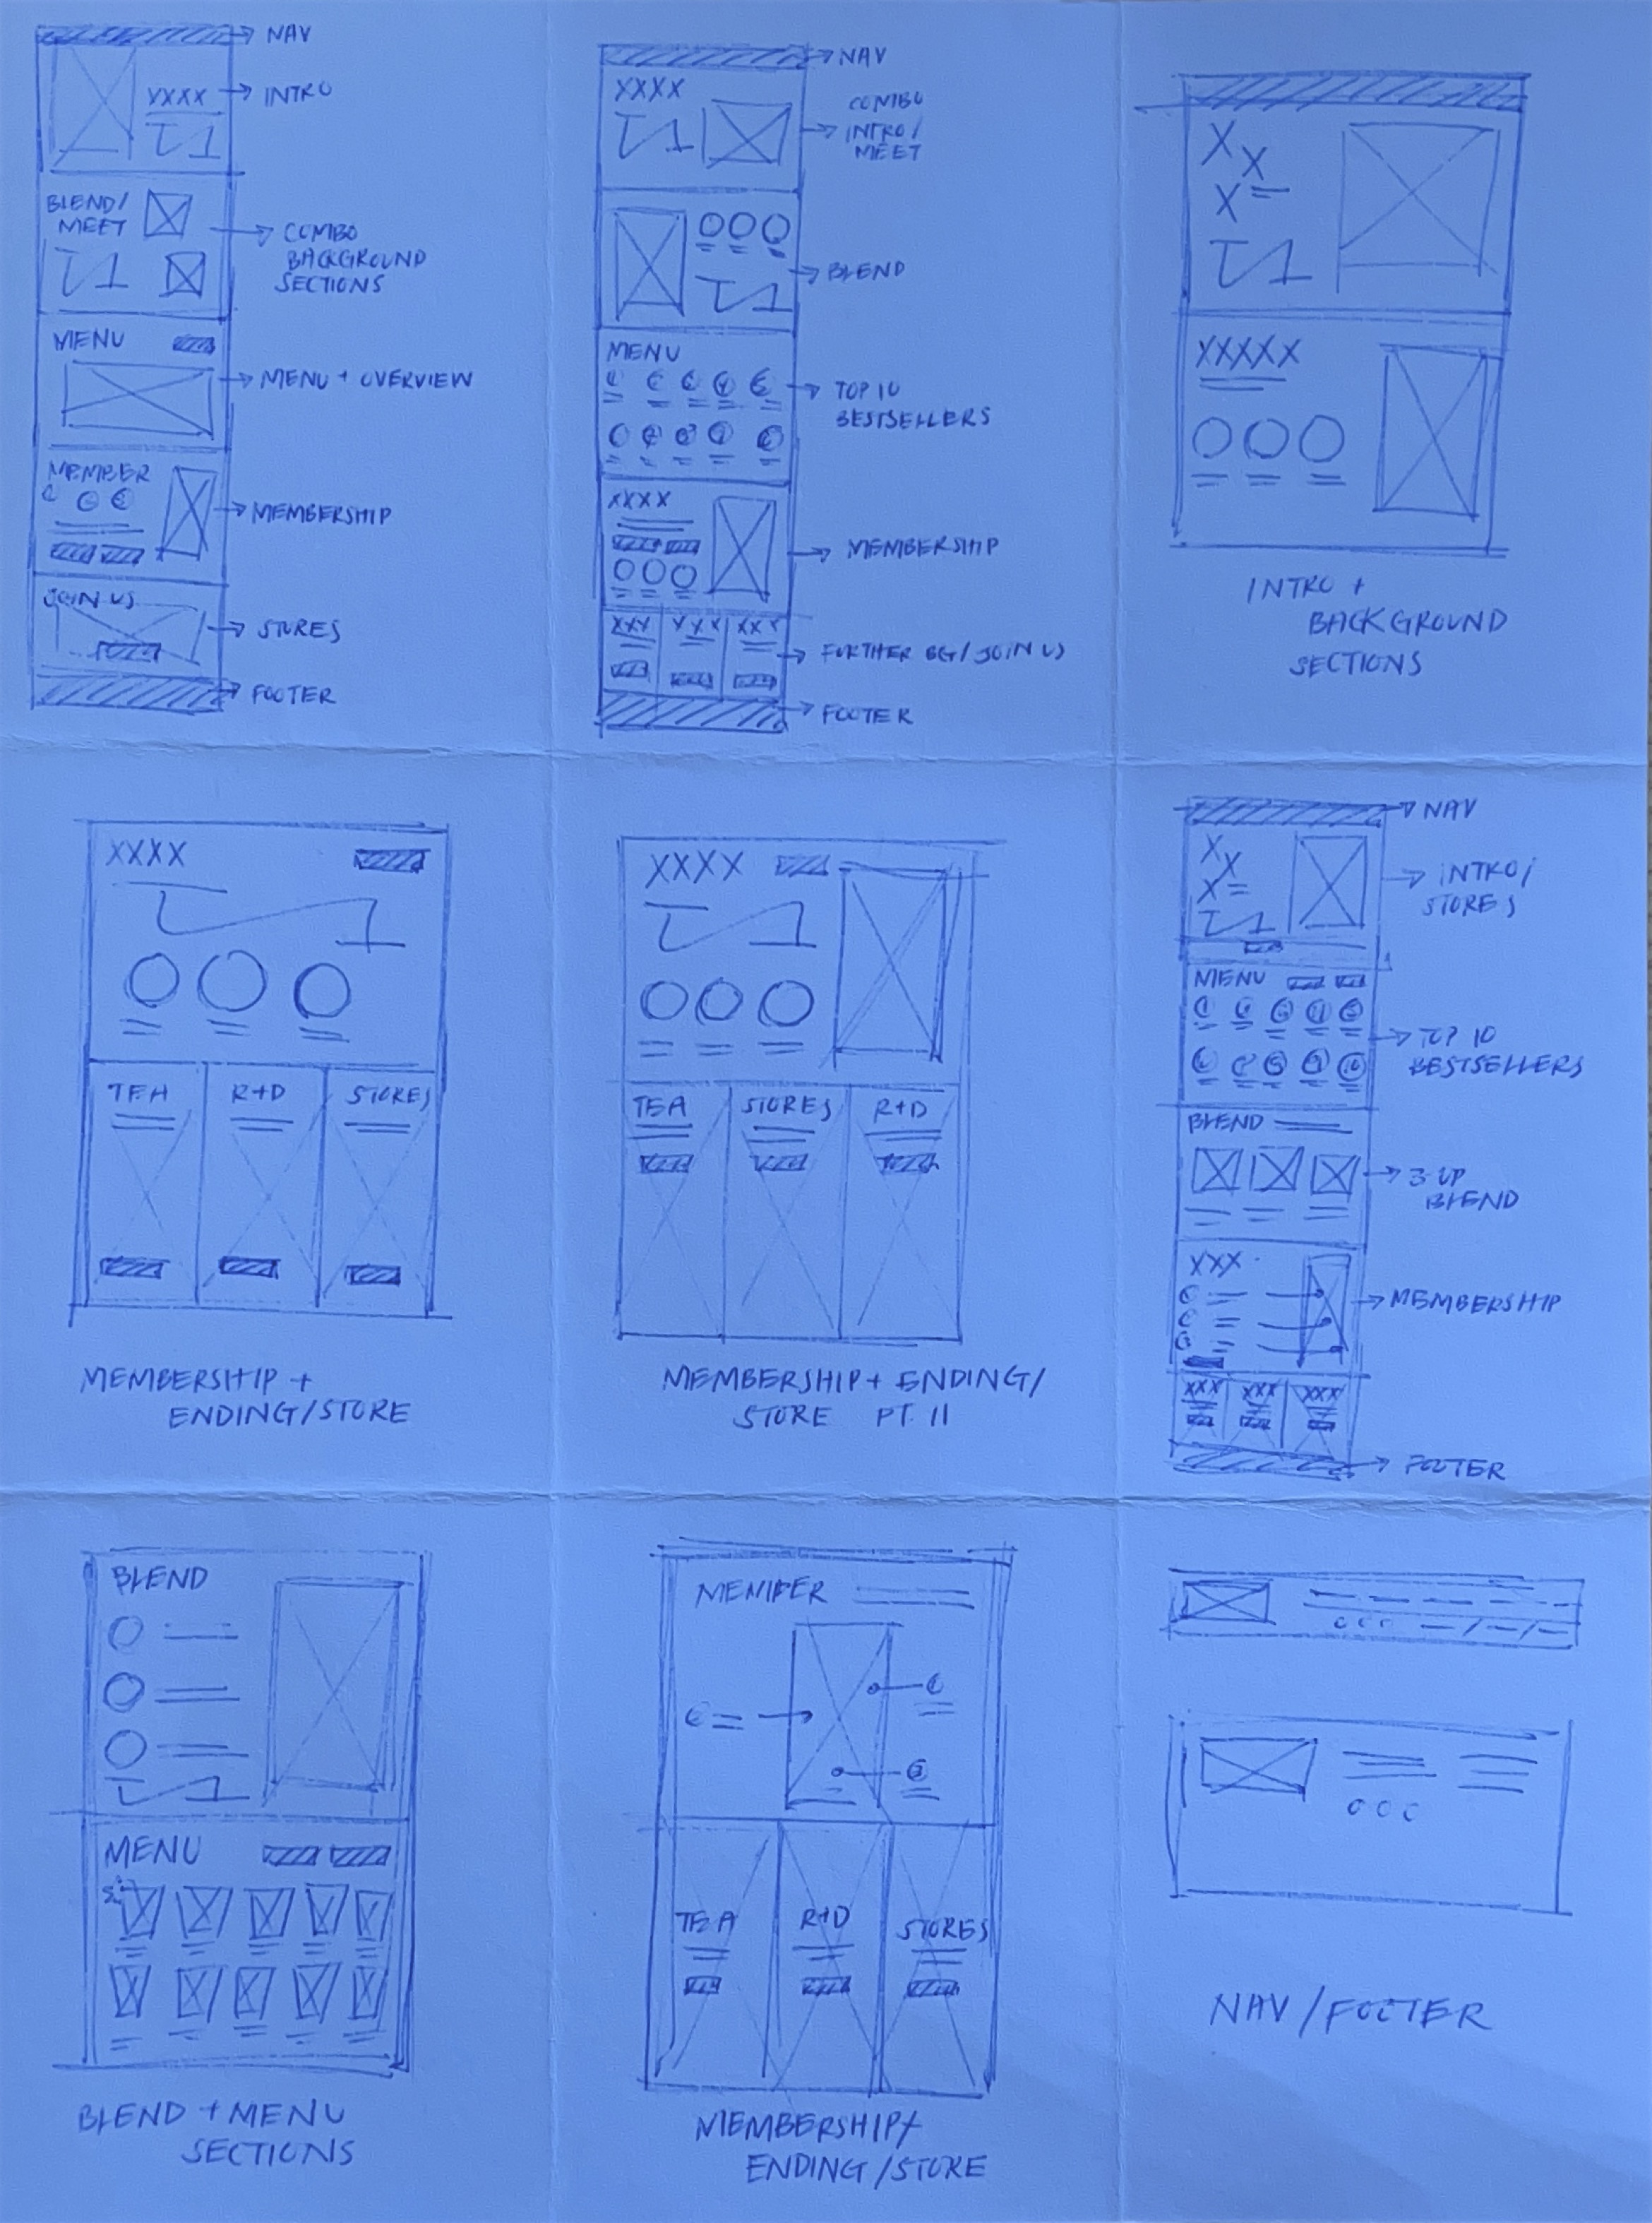 NAV
XXXX
INTRO
BLEND/
MEET
COMBO
BACKGROUND
SECTIONS
MENU
MENU + OVERVIEW
MEMBER
MEMBERSHIP
JOIN US
STORES
FOOTER
NAV
XXXX
COMBO
INTRO/
MEET
BLEND
MENU
TOP 10
BESTSELLERS
XXXX
MEMBERSHIP
XXX XXX XXX
FURTHER BG/JOIN US
FOOTER
X
X
X
XXXXX
INTRO +
BACKGROUND
SECTIONS
XXXX
TEA R+D STORES
MEMBERSHIP +
ENDING/STORE
XXXX
TEA STORES R+D
MEMBERSHIP + ENDING/
STORE PT. II
NAV
X
X
X
INTRO/
STORES
MENU
TOP 10
BESTSELLERS
BLEND
3-UP
BLEND
XXX
MEMBERSHIP
XXX XXX XXX
FOOTER
BLEND
MENU
BLEND + MENU
SECTIONS
MEMBER
TEA R+D STORES
MEMBERSHIP/
ENDING/STORE
NAV/FOOTER